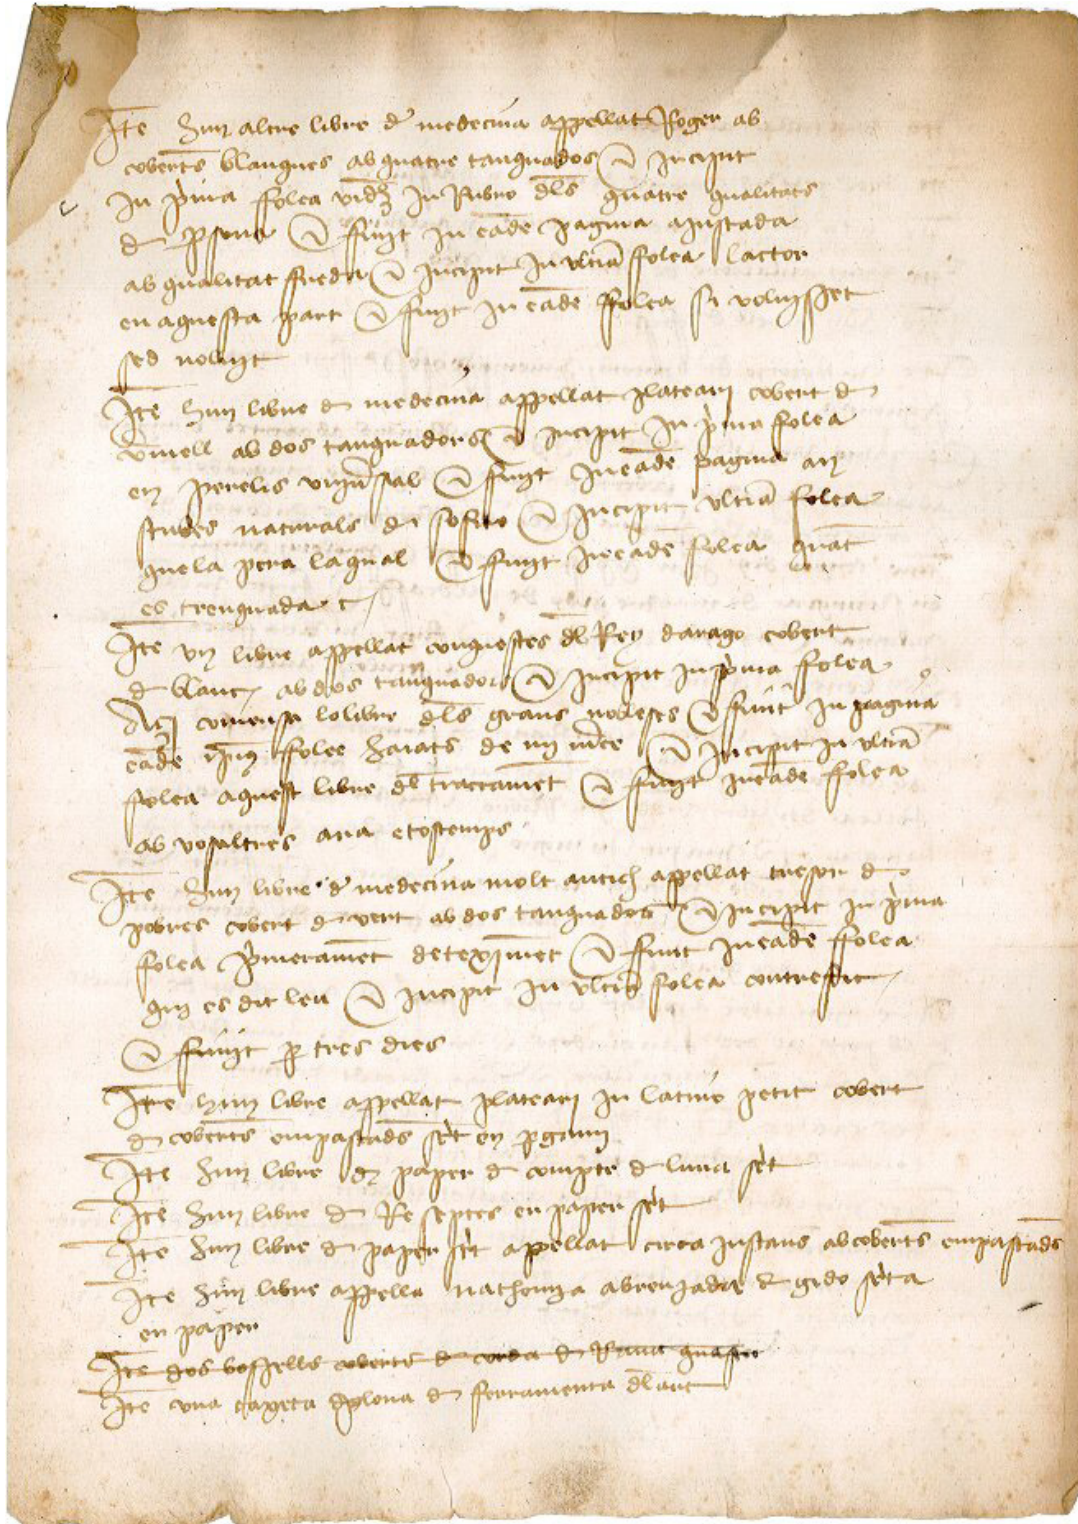 Ite hun altre libre d medecina appellat Roger ab
cobertes blanques ab quatre tanquados e incipit
in prima ffolea videlz in Rubro dls quatre qualitats
d persona e ffinyt in eade pagina aiustada
ab qualitat ffreda e incipit in ultia ffolea lactor
en aquesta part e ffinyt in eade ffolea si voluisset
sed noluyt
Ite hun libre d medecina appellat plateari cobert d
vmell ab dos tanquadors e incipit in prima ffolea
en e ffinyt in eade pagina
naturals d e incipit ultia folea
que la pera la qual e ffinyt in eade folea
es trenquada
Ite un libre appellat conquestes dl Rey darago cobert
d blanc ab dos tanquados e incipit in prima ffolea
Aci comensa lo libre dls grans nobleses e ffinit in pagina
eade ffolee de e incipit in ultia
ffolea aquest libre dl tractamet e ffinyt in eade ffolea
ab vosaltres ara e tostemps
Ite hun libre d medecina molt antich appellat tresor d
pobres cobert d vert ab dos tanquados e incipit in prima
folea primeramet e ffinit in eade ffolea
qui es dit leu e incipit in ultia folea contrefict
e ffinyt per tres dies
Ite hun libre appellat plateari in latino petit cobert
d cobertes empastades scrit en pergami
Ite hun libre d paper d compte d luna scrit
Ite hun libre d Reseptes en paper scrit
Ite hun libre d paper scrit appellat circa instans ab cobertes empastades
Ite hun libre appella nathomia abreujada d gido scrita
en paper
Ite dos bossells coberts d corda d
Ite una caxeta plena d ferramenta dlart